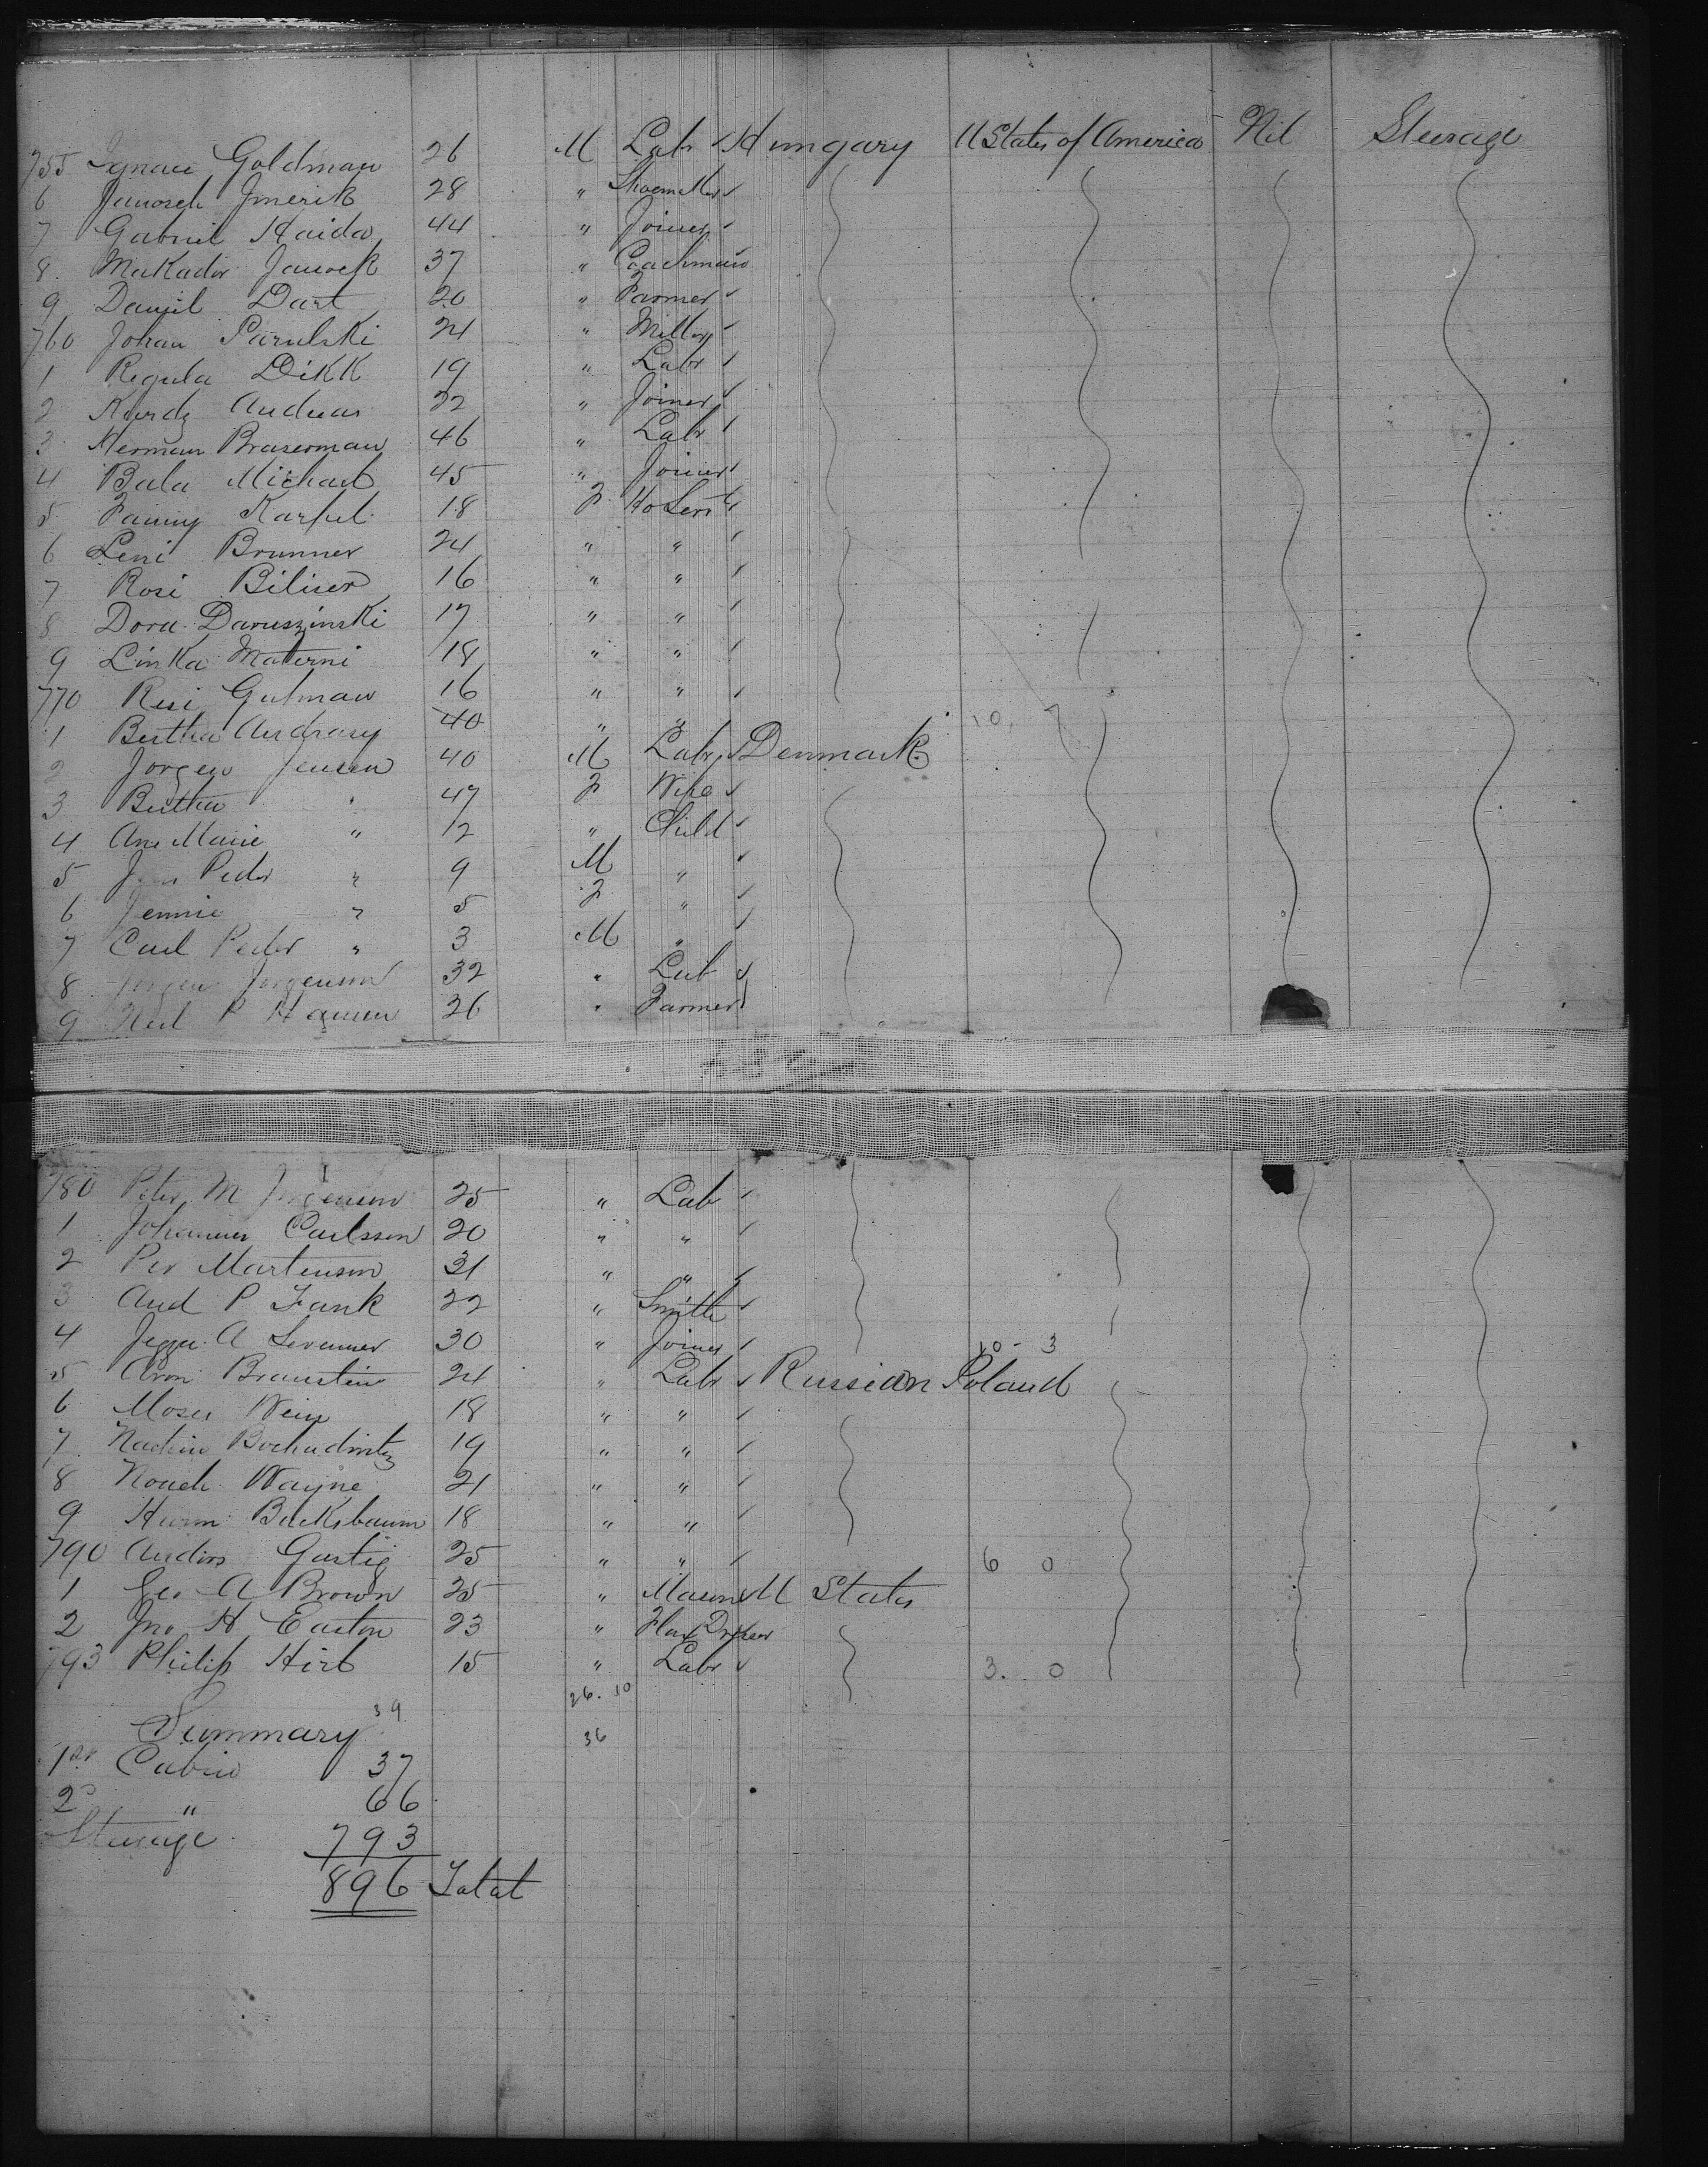 755 Ignaci Goldman 26 M Labr Hungary U States of America Nil Steerage
6 Janosch Imerik 28 " Shoemaker
7 Gabriel Haida 44 " Joiner
8. Makador Janock 37 " Coachman
9 Daniil Dart 20 " Farmer
760 Johan Parulski 24 " Miller
1 Regula Dikk 19 " Labr
2 Kurdz Andreas 22 " Joiner
3 Herman Braserman 46 " Labr
4 Bala Michael 45 " Joiner
5 Fanny Karfel 18 F Ho Servt
6 Leni Brunner 24 " "
7 Rosi Biliser 16 " "
8 Dora Daruszinski 17 " "
9 Linka Materni 18 " "
770 Resi Gutman 16 " "
1 Bertha Andrasy 40 " " 10. 7
2 Jorgen Jensen 40 M Labr Denmark
3 Bertha " 47 F Wife
4 Ane Marie " 12 " Child
5 Peder " 9 M "
6 Jennie " 5 F "
7 Carl Peder " 3 M "
8 Jorgen Jorgensen 32 " Lab
9 Neil P Hansen 26 " Farmer
780 Peter M 25 " Lab
1 Johannes Carlsson 20 " "
2 Per Martenson 31 " "
3 And P Fank 22 " Smith
4 A 30 " Joiner 10 - 3
5 Aron Braunstein 24 " Labr Russian Poland
6 Moses Wein 18 " "
7 19 " "
8 Noach Wayne 21 " "
9 Herm Bucksbaum 18 " "
790 Anders Gastig 25 " " 6 0
1 Geo A Brown 25 " Mason U States
2 Jno H Easton 23 " Flax Dresser
793 Philip Hirt 15 " Labr 3. 0
26. 10
39
Summary 36
1st Cabin 37
2d " 66
Steerage 793
896 Total